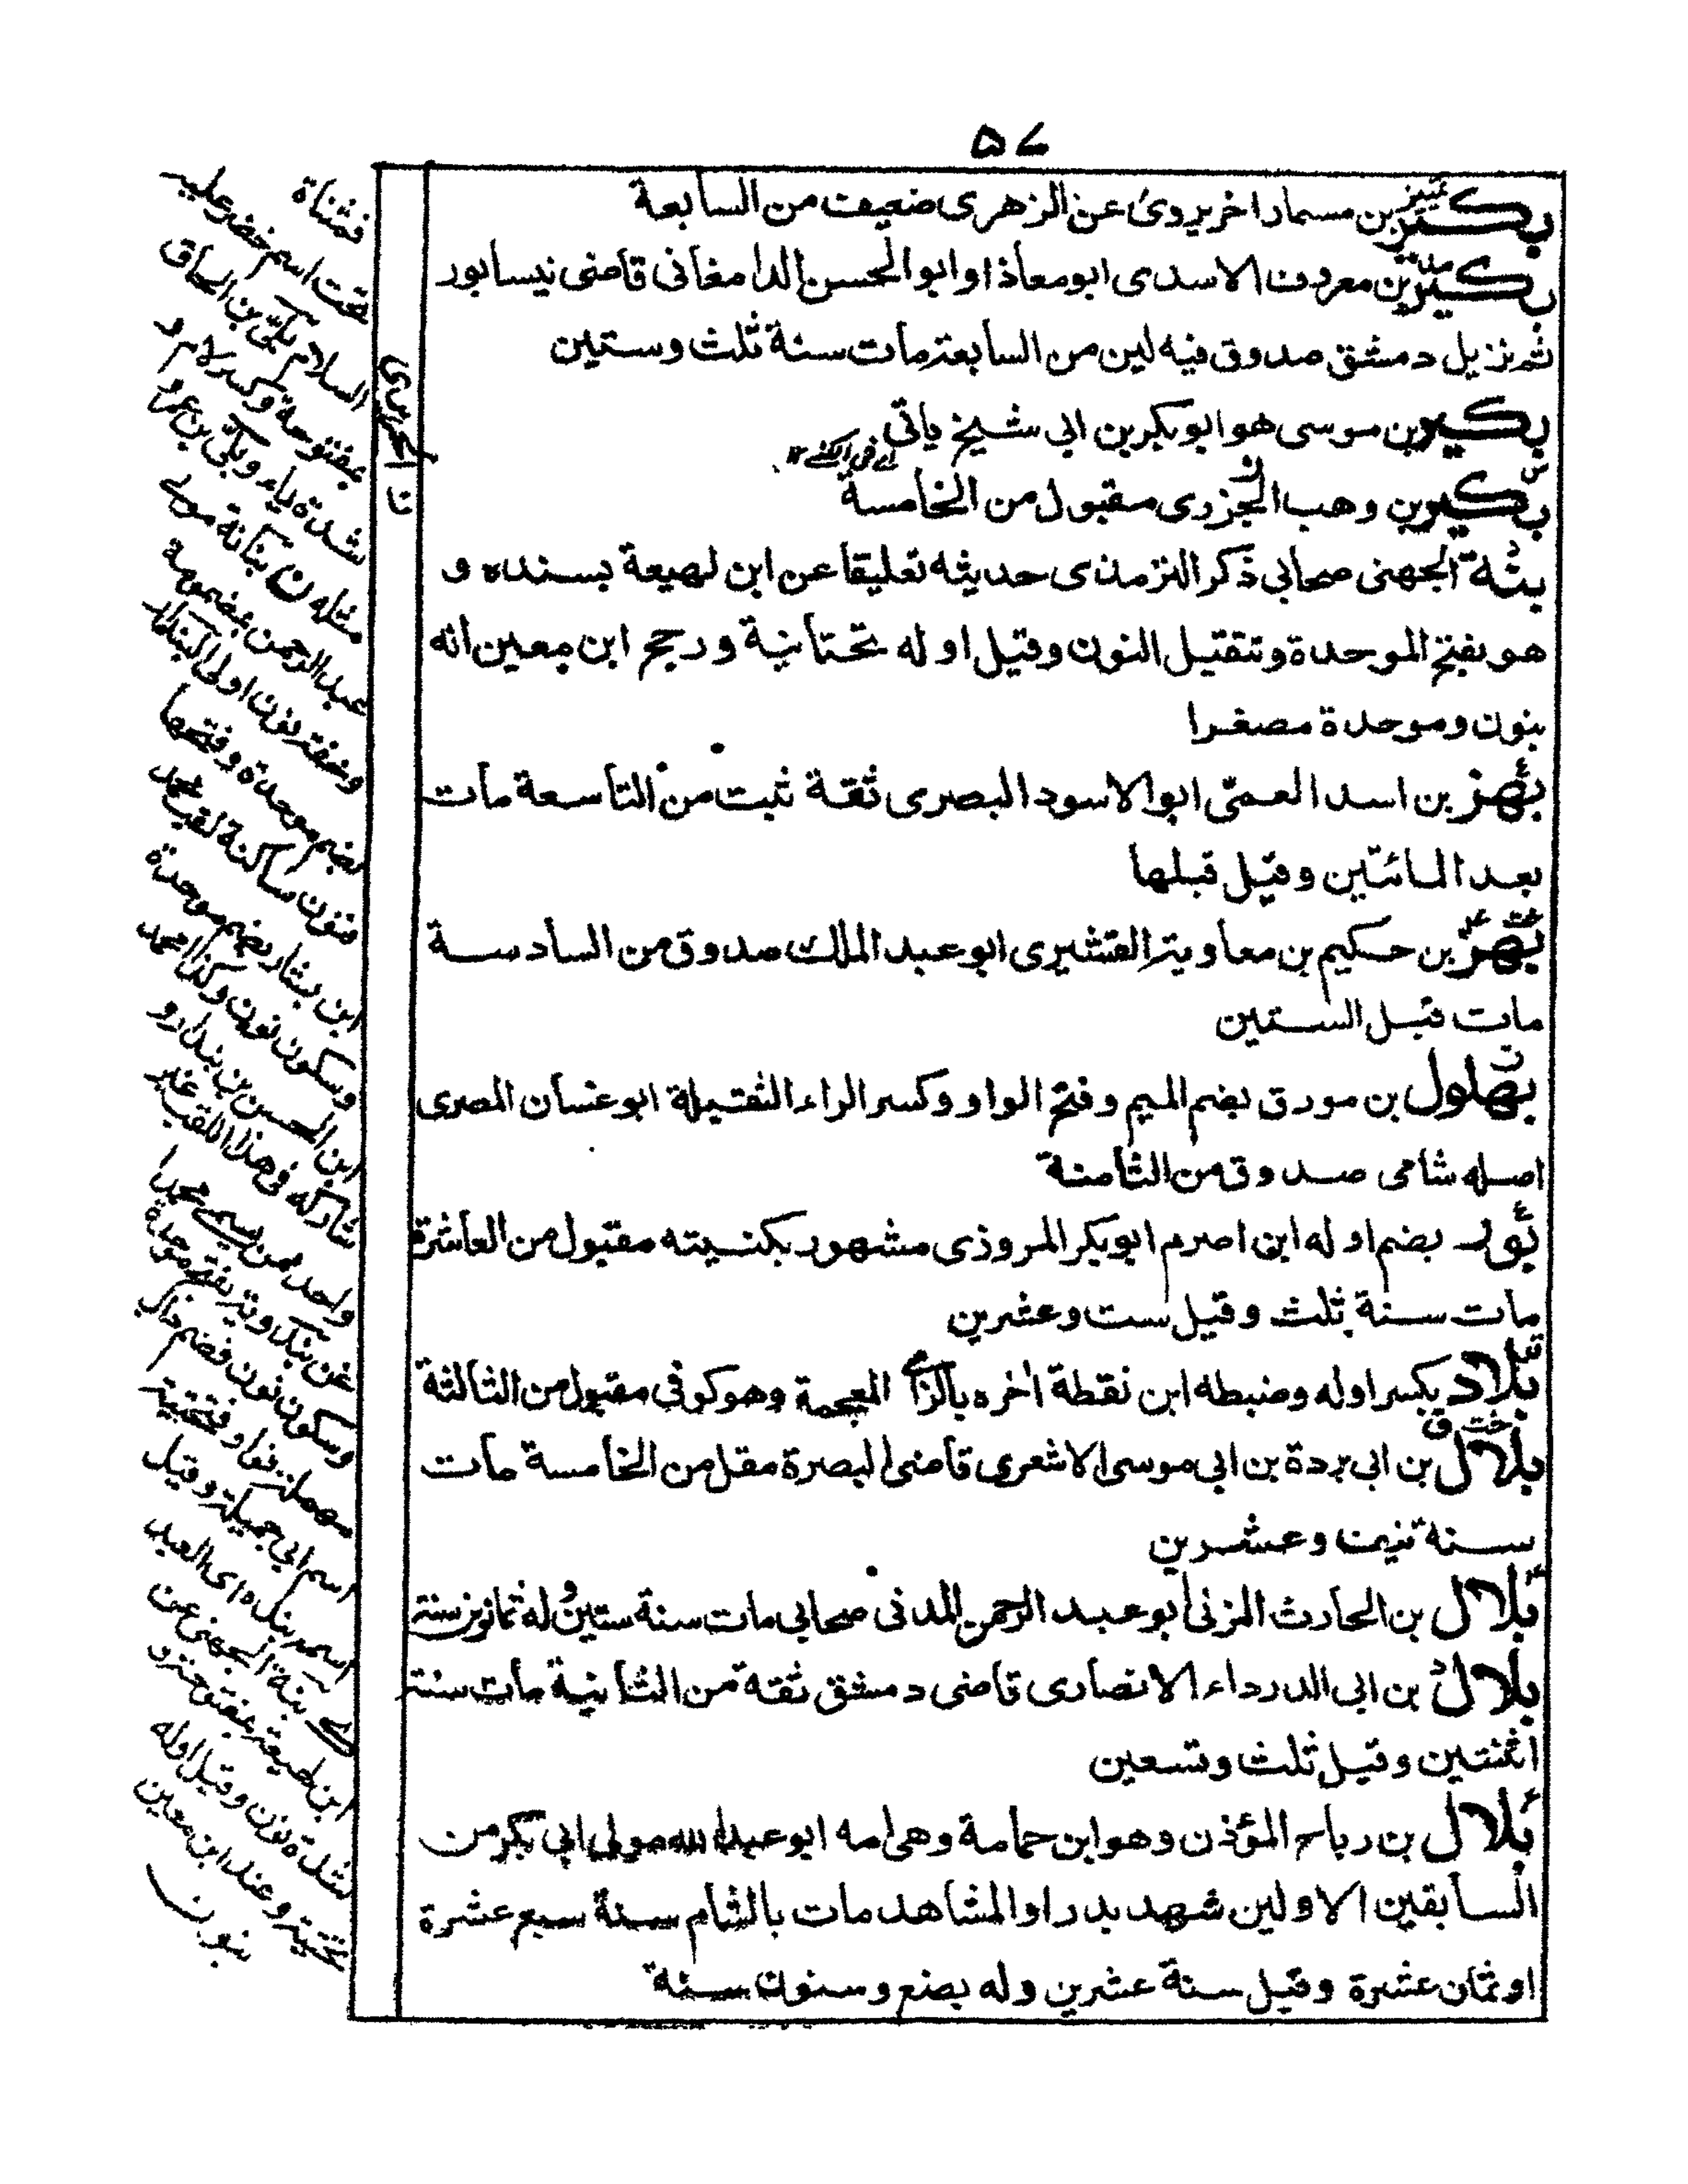 ۵۷
بكير بن مسمار اخر يروى عن الزهرى ضعيف من السابعة
تمييز
بكير بن معروف الاسدى ابو معاذ او ابو الحسن الدامغانى قاضى نيسابور
مد
ثم نزيل دمشق صدوق فيه لين من السابعة مات سنة ثلث وستين
بكير بن موسى هو ابو بكر بن ابي شيخ ياتى
اے فی الکنے ۱۲
بكير بن وهب الجزرى مقبول من الخامسة
س
بنة الجهنى صحابي ذكر الترمذى حديثه تعليقا عن ابن لهيعة بسنده و
هو بفتح الموحدة وتثقيل النون وقيل اوله تحتانية ورجح ابن معين انه
بنون وموحدة مصغرا
بهز بن اسد العمّى ابو الاسود البصرى ثقة ثبت من التاسعة مات
ع
بعد المائتين وقيل قبلها
بهز بن حكيم بن معاوية القشيرى ابو عبد الملك صدوق من السادسة
خت عه
مات قبل الستين
بهلول بن مورق بضم الميم وفتح الواو وكسر الراء الثقيلة ابو غسان المصرى
ق
اصله شامى صدوق من الثامنة
بور بضم اوله ابن اصرم ابو بكر المروزى مشهور بكنيته مقبول من العاشرة
مات سنة ثلث وقيل ست وعشرين
بلاد بكسر اوله وضبطه ابن نقطة اخره بالزاے المعجمة وهو كوفى مقبول من الثالثة
بلال بن ابي بردة بن ابي موسى الاشعرى قاضى البصرة مقل من الخامسة مات
خت ق
سنة نيف وعشرين
بلال بن الحارث المزنى ابو عبد الرحمن المدنى صحابي مات سنة ستين وله ثمانون سنة
بلال بن ابي الدرداء الانصارى قاضى دمشق ثقة من الثانية مات سنة
د
اثنتين وقيل ثلث وتسعين
بلال بن رباح المؤذن وهو ابن حمامة وهى امه ابو عبد الله مولى ابي بكر من
ع
السابقين الاولين شهد بدرا والمشاهد مات بالشام سنة سبع عشرة
او ثمان عشرة وقيل سنة عشرين وله بضع وستون سنة
فمثناة
تحت اسم خضر عليه
السلام بكّى بن اسحاق
بمفتوحة وكسر لام و
شدة ياء وبكّى بن عمرو
مثله ن بنانة مولے
عبد الرحمن بمضمومة
وخفة نون اولى البندار
بضم موحدة وفتحها
فنون ساكنة لقب محمد
ابن بشار بضم موحدة
وسكون نون وكذا محمد
ابن الحسن بن بندار و
شاركه فى هذا اللقب غير
واحد ممن يسمے محمدا
وسكون نون فضم
مهملة بفاء وتحتية
اسم ابي جميلة وقيل
اسمه بنك ه اى العبد
ے بنة الجهنى عن
ابن لهيعة بمفتوحة و
شدة نون وقيل اوله
تحتية وعند ابن معين
بنون